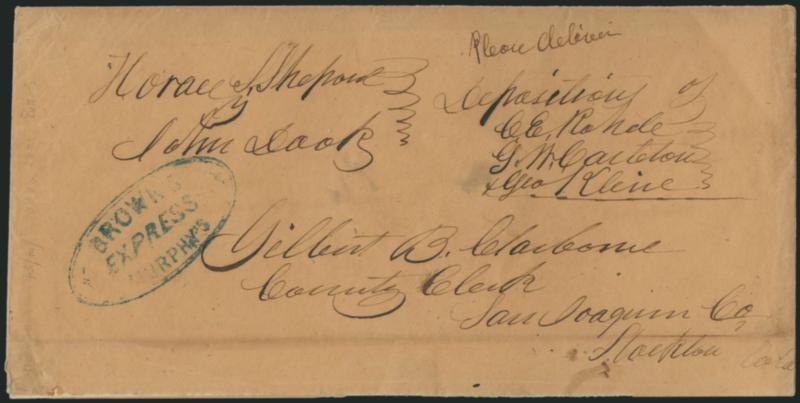 Please deliver
Horace S. Shepard
vs
John Doak
Depositions of
C. E. Rohde
G. W. Carleton
& Geo Kline
BROWN'S
EXPRESS
MURPHY'S
Gilbert B. Claiborne
County Clerk
San Joaquin Co
Stockton